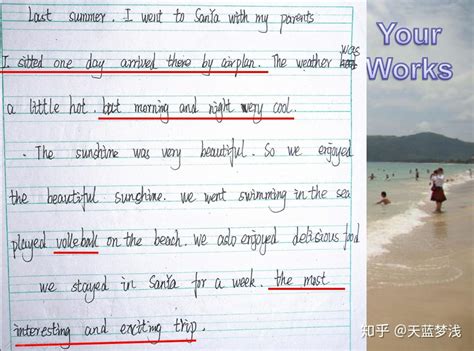 Last summer. I went to Santa with my parents
I sitted one day arrived there by airplan. The weather was
a little hot. but morning and night very cool.
. The sunshine was very beautiful. So we enjoyed
the beautiful sunshine. we went swimming in the sea
played volleball on the beach. we aslo enjoyed delisious food
we stayed in Santa for a week. the most
interesting and exciting trip.
Your
Works
知乎 @天蓝梦浅